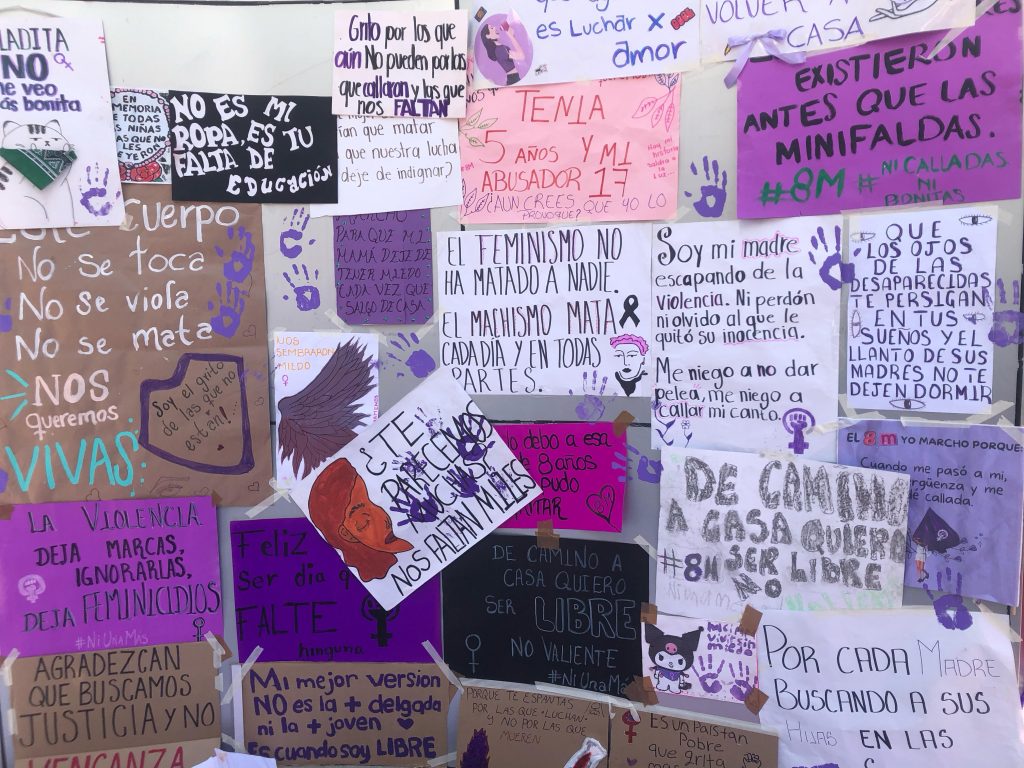 ADITA
NO
me veo
más bonita
EN MEMORIA
DE TODAS
NIÑAS
NO ES MI
ROPA, ES TU
FALTA DE
EDUCACIÓN
Grito por las que
aún No pueden por las
que callaron y las que
nos FALTAN
tan que matar
que nuestra lucha
deje de indignar?
es Luchar x
amor
TENIA
5 AÑOS Y MI
ABUSADOR 17
¿AUN CREES, QUE YO LO
PROVOQUE?
VOLVER A
CASA
EXISTIERON
ANTES QUE LAS
MINIFALDAS.
#8M # NI CALLADAS
NI
BONITAS
Este Cuerpo
No se toca
No se viola
No se mata
NOS
queremos
VIVAS!
Soy el grito
de las que no
están!!
PARA QUE MI
MAMÁ DEJE DE
TENER MIEDO
CADA VEZ QUE
SALGO DE CASA
NOS
SEMBRARON
MIEDO
EL FEMINISMO NO
HA MATADO A NADIE.
EL MACHISMO MATA
CADA DÍA Y EN TODAS
PARTES.
Soy mi madre
escapando de la
violencia. Ni perdón
ni olvido al que le
quitó su inocencia.
Me niego a no dar
pelea, me niego a
callar mi canto.
QUE
LOS OJOS
DE LAS
DESAPARECIDAS
TE PERSIGAN
EN TUS
SUEÑOS Y EL
LLANTO DE SUS
MADRES NO TE
DEJEN DORMIR
¿TE
PARECEMOS
MUCHAS?
NOS FALTAN MILES
lo debo a esa
8 años
pudo
GRITAR
DE CAMINO
A CASA QUIERO
#8M SER LIBRE
NO
EL 8m YO MARCHO PORQUE:
Cuando me pasó a mí,
vergüenza y me
callada.
LA VIOLENCIA
DEJA MARCAS,
IGNORARLAS,
DEJA FEMINICIDIOS
#NiUnaMas
Feliz
ser día q
FALTE
ninguna
DE CAMINO A
CASA QUIERO
SER LIBRE
NO VALIENTE
#NiUnaMá
AGRADEZCAN
QUE BUSCAMOS
JUSTICIA Y NO
VENGANZA
Mi mejor version
NO es la + delgada
ni la + joven
Es cuando soy LIBRE
PORQUE TE ESPANTAS
POR LAS QUE "LUCHAN"
Y NO POR LAS QUE
MUEREN
Es un País tan
Pobre
que grita
POR CADA MADRE
BUSCANDO A SUS
HIJAS EN LAS